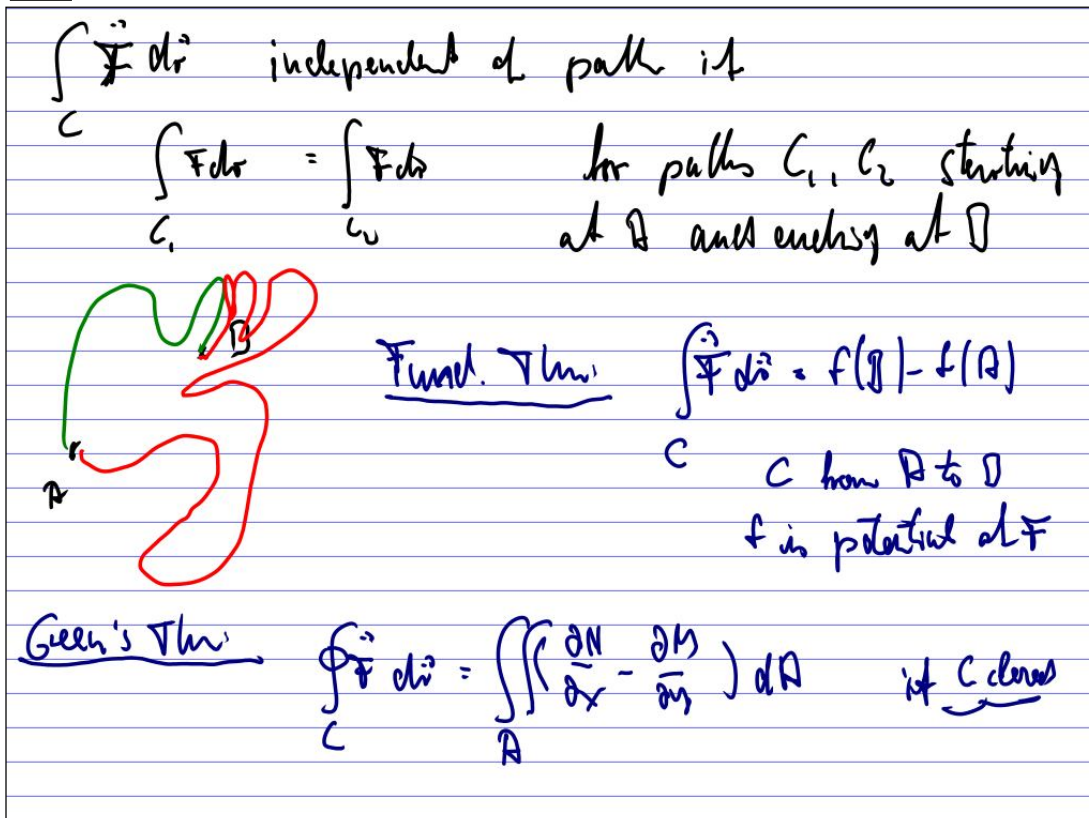 ∫_C F⃗ dr⃗ independent of path if
∫_{C₁} F dr = ∫_{C₂} F dr for paths C₁, C₂ starting
at A and ending at B
B
Fund. Thm: ∫_C F⃗ dr⃗ = f(B) - f(A)
A
C from A to B
f is potential of F
Green's Thm: ∮_C F⃗ dr⃗ = ∬_A (∂N/∂x - ∂M/∂y) dA if C closed